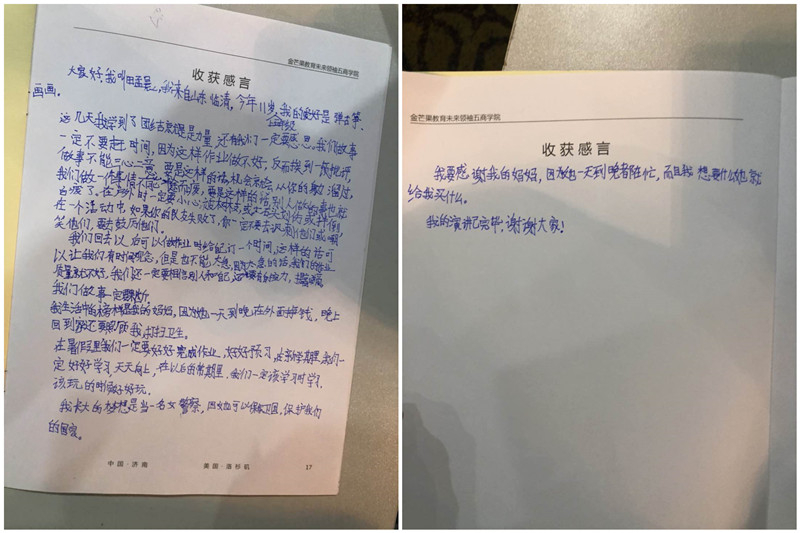 金芒果教育未来领袖五商学院
收获感言
大家好,我叫田孟晨,我来自山东临清,今年11岁,我的爱好是弹古筝、
画画。
这几天我学到了团结就是力量,还有
一定要感恩。我们做事
一定不要赶时间,因为这样作业做不好,反而挨到一顿批评,
做事不能三心二意,要是这样的话,机会就会从你的
溜过,
我们做一件事情一定
别人做的事也
在户外时一定要小心
在一个活动中,如果你的队友失败了,你一定不要去讽刺他们或嘲
笑他们,要去鼓励他们。
我们回去以后可以做作业时给自己订一个时间,这样的话可
以让我们有时间观念,但是也不能太急,因为太急的话,我们的作业
质量就不好,我们还一定要相信别人和自己,
我们做事一定要果断。
我生活中的榜样是我的妈妈,因为她一天到晚在外面挣钱,晚上
回到家还要照顾我,打扫卫生。
在暑假里我们一定要好好完成作业,好好预习,
学期里,我们一
定好好学习,天天向上,在以后的
期里,我们一定该学习时学习,
该玩的时候好好玩。
我长大的梦想是当一名女警察,因为她可以保家卫国,保护我们
的国家。
中国·济南
美国·洛杉矶
17
金芒果教育未来领袖五商学院
收获感言
我要感谢我的妈妈,因为她一天到晚都在忙,而且我想要什么她就
给我买什么。
我的演讲已完毕,谢谢大家!